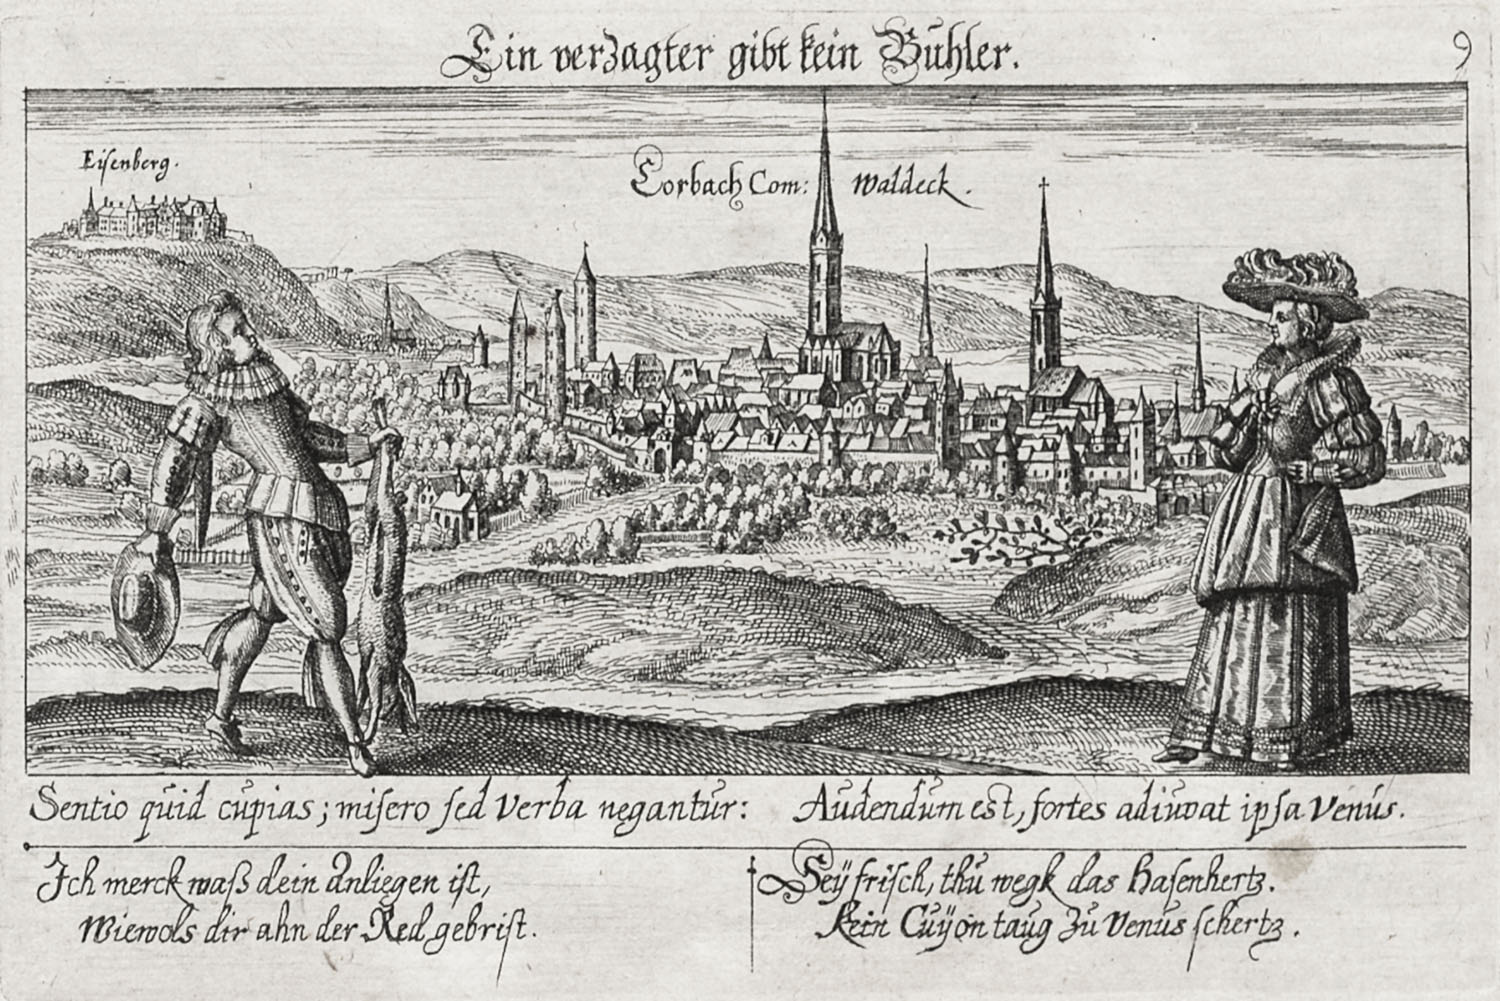 Ein verzagter gibt kein Buhler.
9
Eisenberg.
Corbach Com: Waldeck.
Sentio quid cupias; misero sed verba negantur: Audendum est, fortes adiuvat ipsa Venus.
Ich merck waß dein Anliegen ist,
Wiewols dir ahn der Red gebrist.
Seÿ frisch, thu wegk das Hasenhertz.
Kein Cuÿon taug zu Venus schertz.